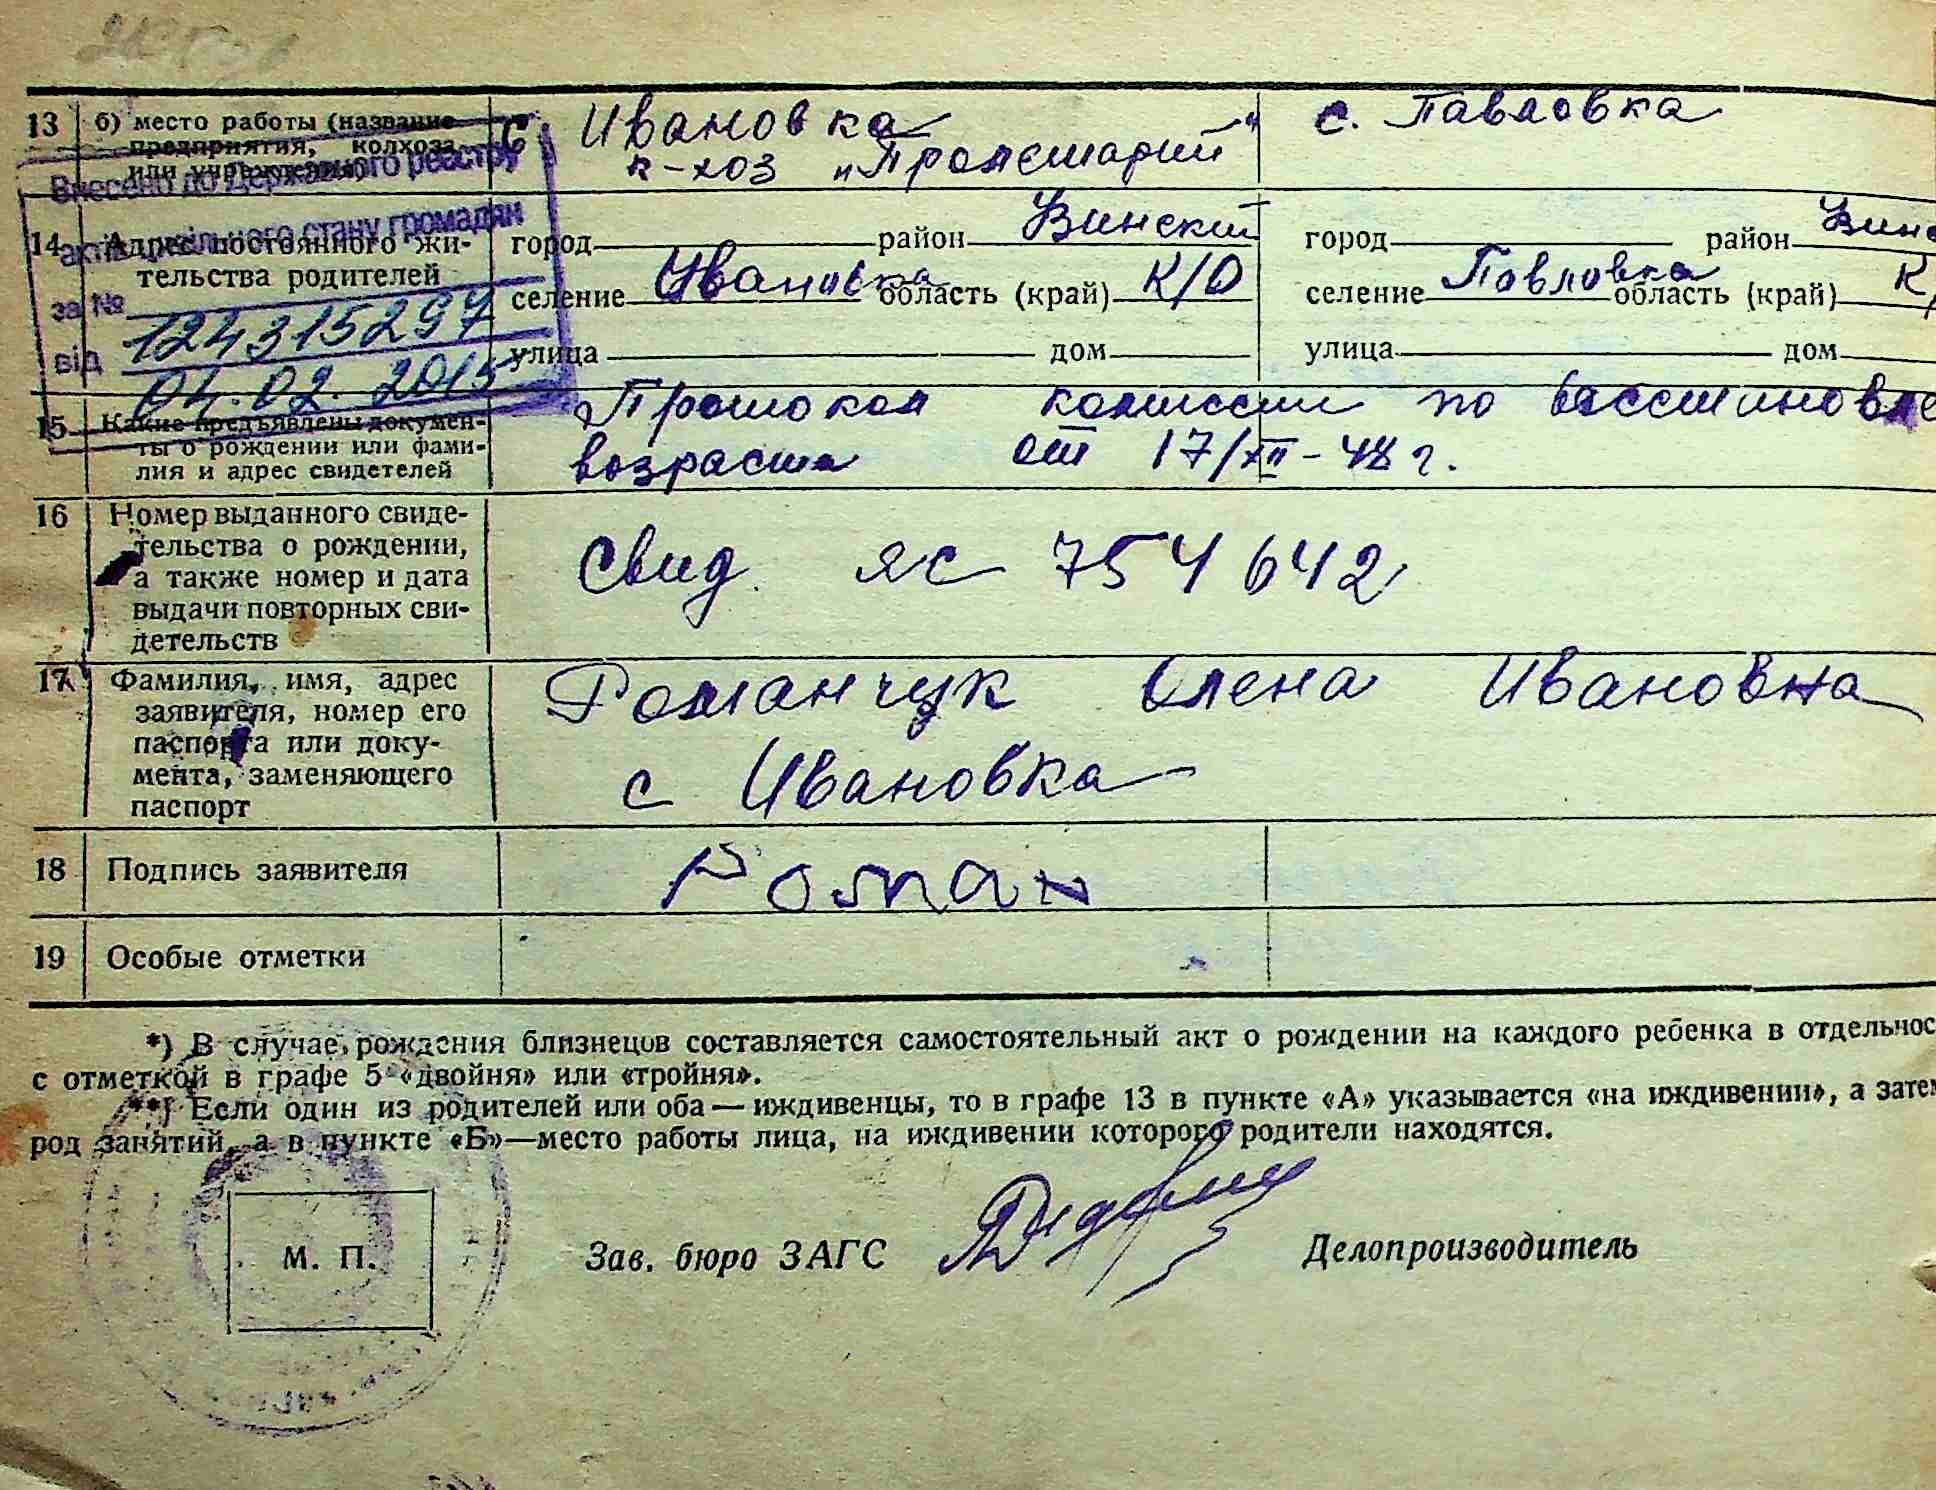 13 б) место работы (название предприятия, колхоза или учреждения)
с Ивановка с. Павловка
к-хоз „Пролетарий“
Внесено до Державного реєстру
актів цивільного стану громадян
за № 124315297
від 04.02.2015
14 Адрес постоянного жи-
тельства родителей
город район Винский город район
селение Ивановка область (край) К/О селение Павловка область (край)
улица дом улица дом
15 Какие предъявлены докумен-
ты о рождении или фами-
лия и адрес свидетелей
Протокол комиссии по
возраста от 17/XII-48 г.
16 Номер выданного свиде-
тельства о рождении,
а также номер и дата
выдачи повторных сви-
детельств
Свид. ЯС 754642
17 Фамилия, имя, адрес
заявителя, номер его
паспорта или доку-
мента, заменяющего
паспорт
Романчук Олена Ивановна
с Ивановка
18 Подпись заявителя Роман
19 Особые отметки
*) В случае рождения близнецов составляется самостоятельный акт о рождении на каждого ребенка в отдельнос
с отметкой в графе 5 «двойня» или «тройня».
**) Если один из родителей или оба — иждивенцы, то в графе 13 в пункте «А» указывается «на иждивении», а зате
род занятий, а в пункте «Б»—место работы лица, на иждивении которого родители находятся.
М. П. Зав. бюро ЗАГС Делопроизводитель